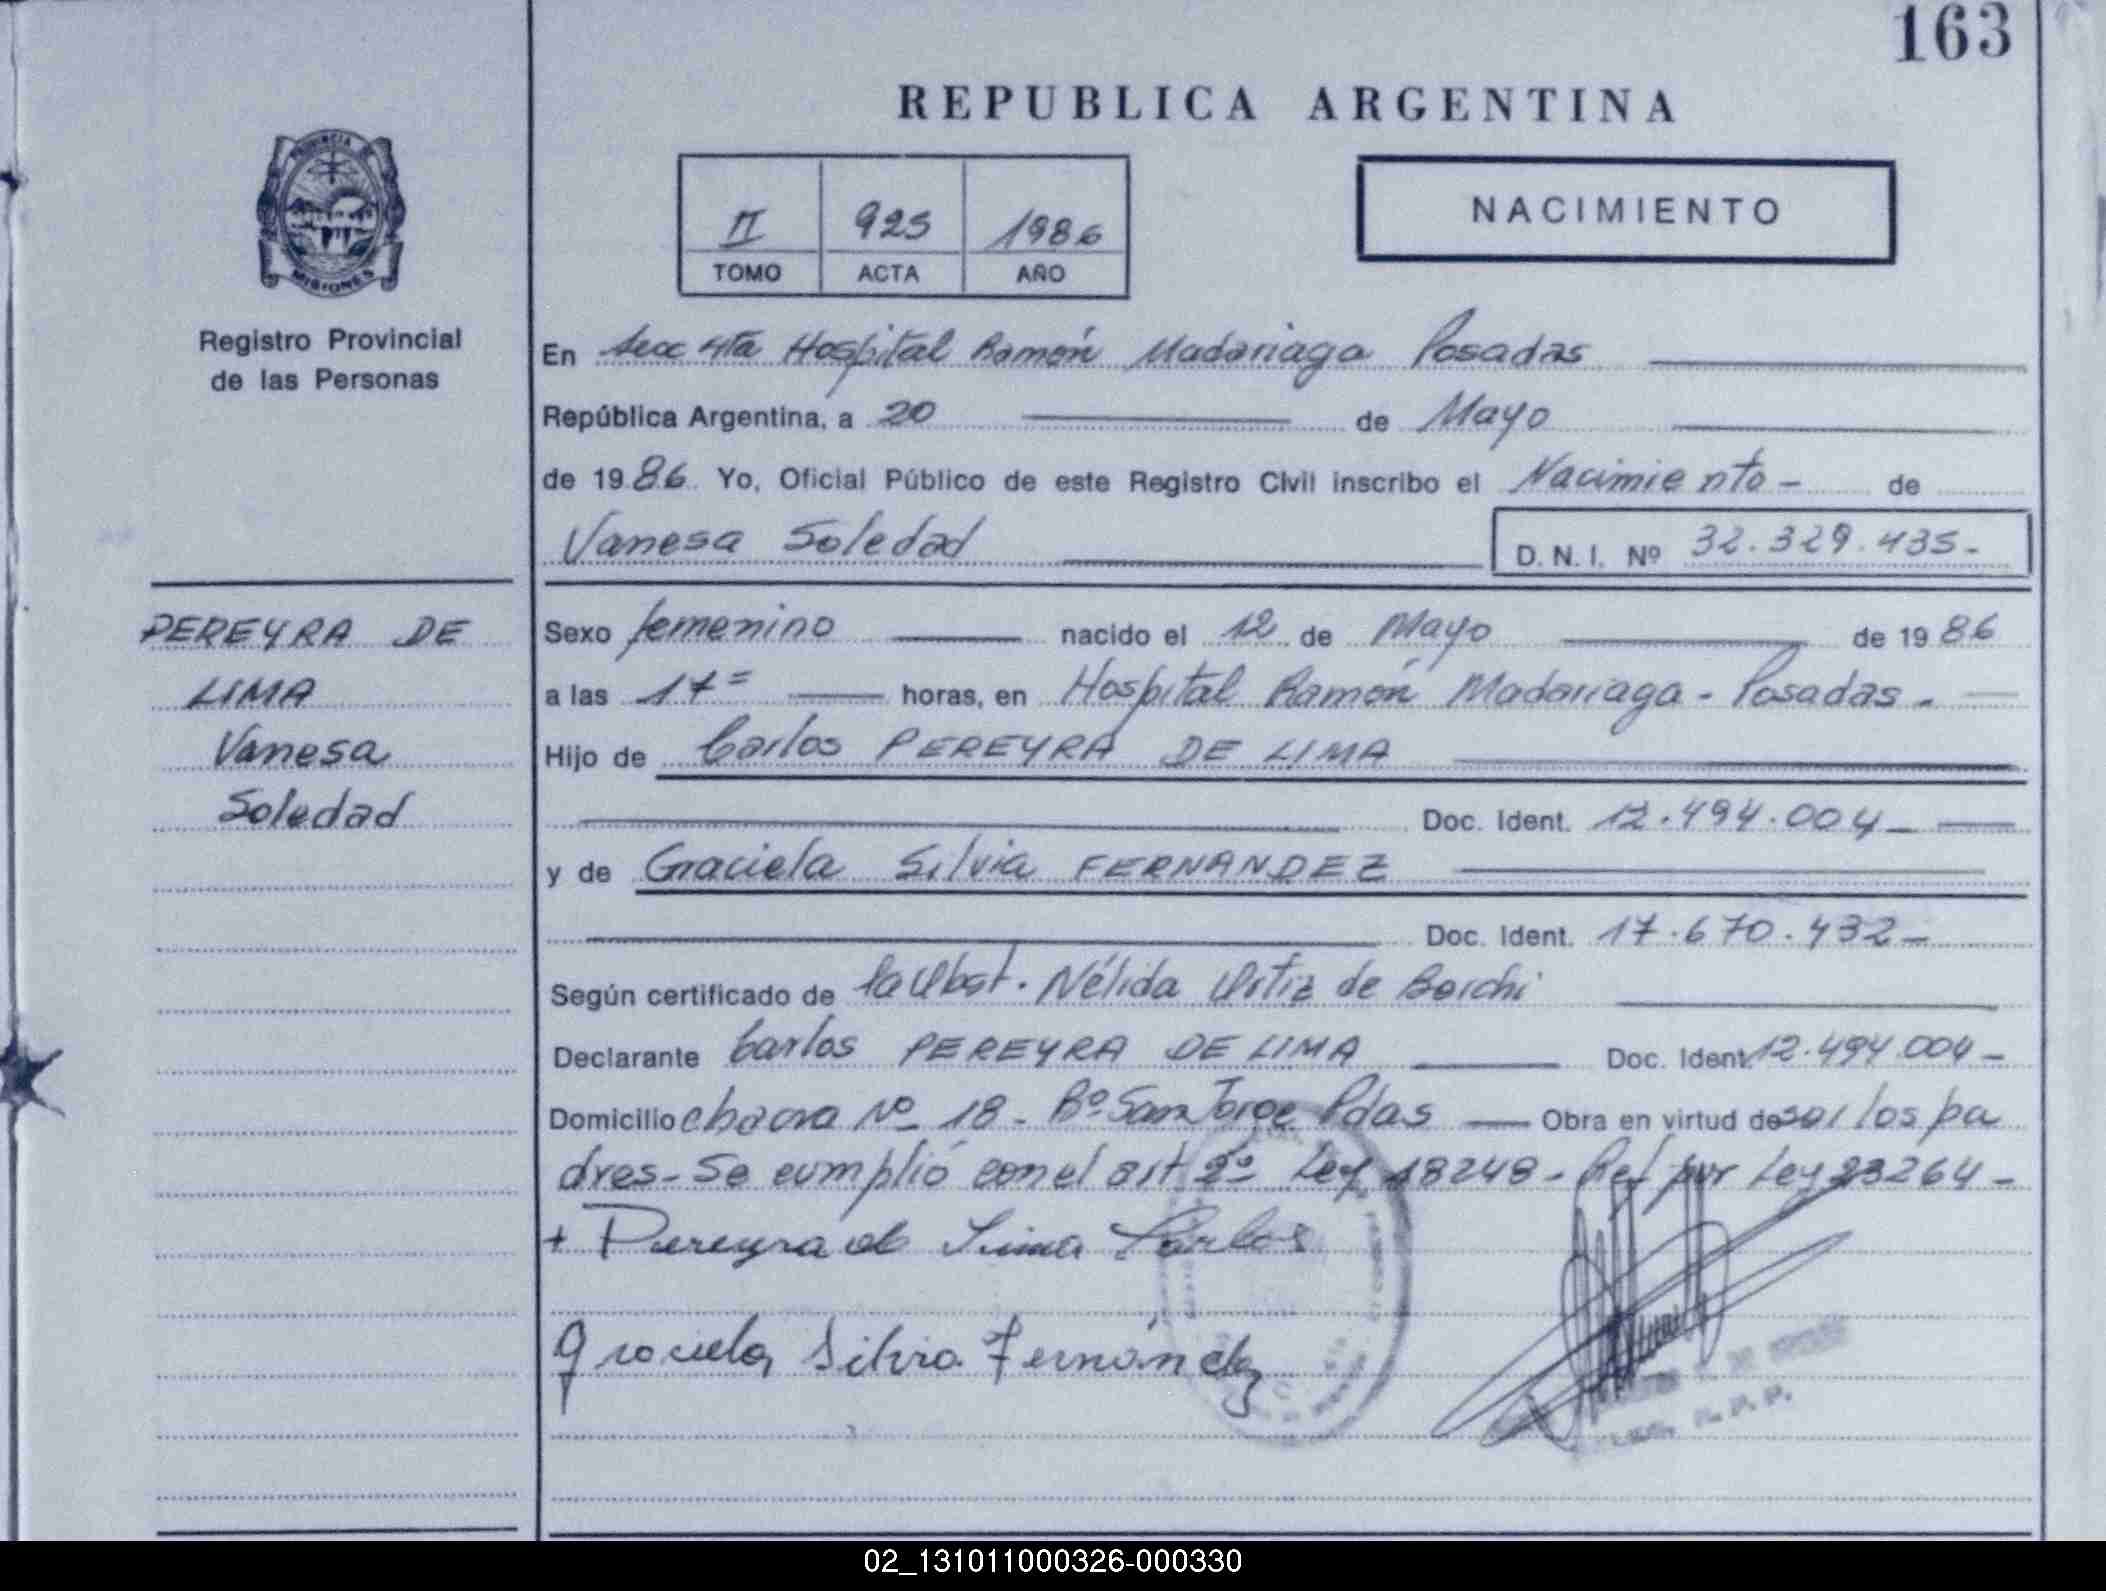 163
REPUBLICA ARGENTINA
PROVINCIA DE
MISIONES
Registro Provincial
de las Personas
II 925 1986
TOMO ACTA AÑO
NACIMIENTO
En Secc 4ta Hospital Ramón Madariaga Posadas
República Argentina, a 20 de Mayo
de 1986 Yo, Oficial Público de este Registro Civil inscribo el Nacimiento - de
Vanesa Soledad D.N.I. Nº 32.329.435.-
PEREYRA DE
LIMA
Vanesa
Soledad
Sexo femenino nacido el 12 de Mayo de 1986
a las 17= horas, en Hospital Ramón Madariaga - Posadas.-
Hijo de Carlos PEREYRA DE LIMA
Doc. Ident. 12.494.004-
y de Graciela Silvia FERNANDEZ
Doc. Ident. 17.670.432-
Según certificado de la Obst. Nélida Ortiz de
Declarante Carlos PEREYRA DE LIMA Doc. Ident. 12.494.004-
Domicilio chacra Nº 18 - Bº San Jorge Pdas Obra en virtud de ser los pa
dres- Se cumplió con el art 2º Ley 18248- Ref por Ley 23264-
+ Pereyra de Lima Carlos
Graciela Silvia Fernández
R.P.P.
02_131011000326-000330